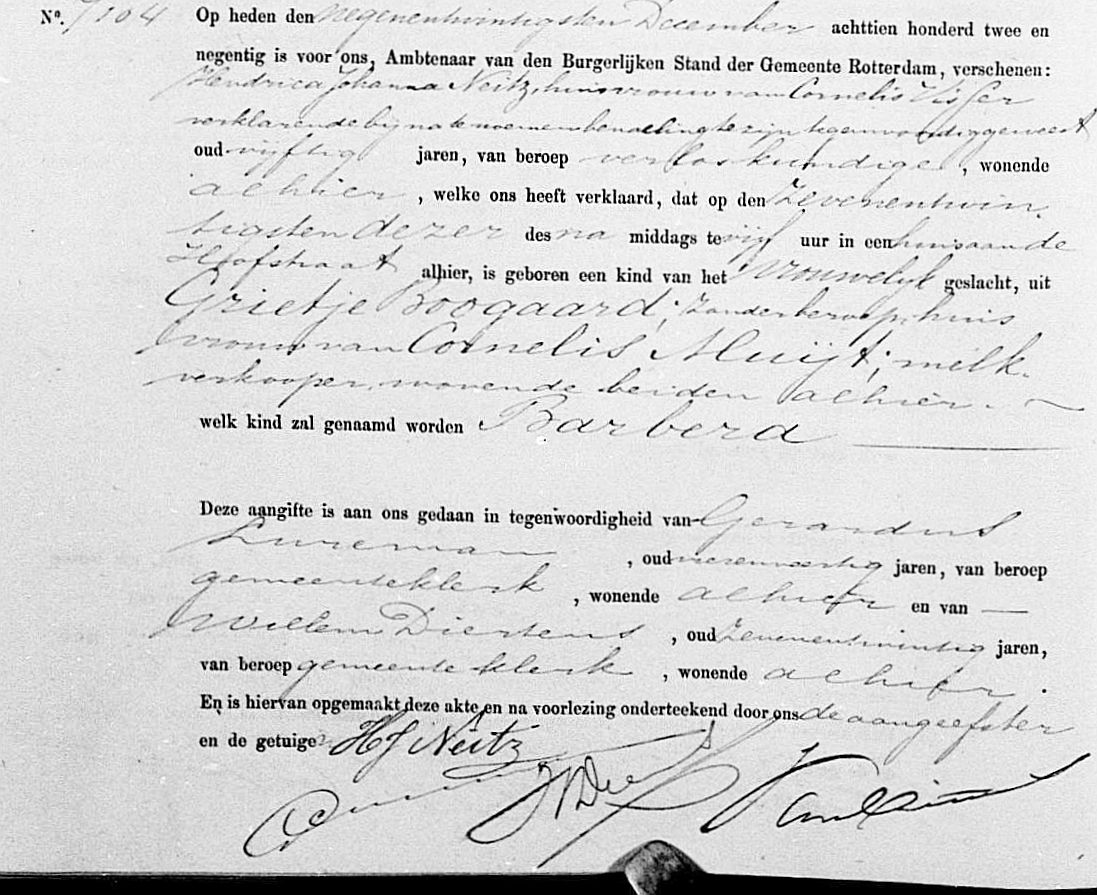 No. 7104 Op heden den negenentwintigsten December achttien honderd twee en
negentig is voor ons, Ambtenaar van den Burgerlijken Stand der Gemeente Rotterdam, verschenen:
Hendrica Johanna Neitz, huisvrouw van Cornelis Visser
verklarende bij na te noemen bevalling te zijn tegenwoordig geweest
oud vijftig jaren, van beroep verloskundige, wonende
alhier, welke ons heeft verklaard, dat op den zevenentwin
tigsten dezer des na middags te vijf uur in een huis aan de
Hofstraat alhier, is geboren een kind van het vrouwelijk geslacht, uit
Grietje Boogaard, zonder beroep, huis
vrouw van Cornelis Muijt, melk
verkooper, wonende beiden alhier.
welk kind zal genaamd worden Barbera
Deze aangifte is aan ons gedaan in tegenwoordigheid van Gerardus
Lureman, oud jaren, van beroep
gemeenteklerk, wonende alhier en van
Willem Diertens, oud zevenentwintig jaren,
van beroep gemeente klerk, wonende alhier.
En is hiervan opgemaakt deze akte en na voorlezing onderteekend door ons de aangeefster
en de getuige HJ Neitz